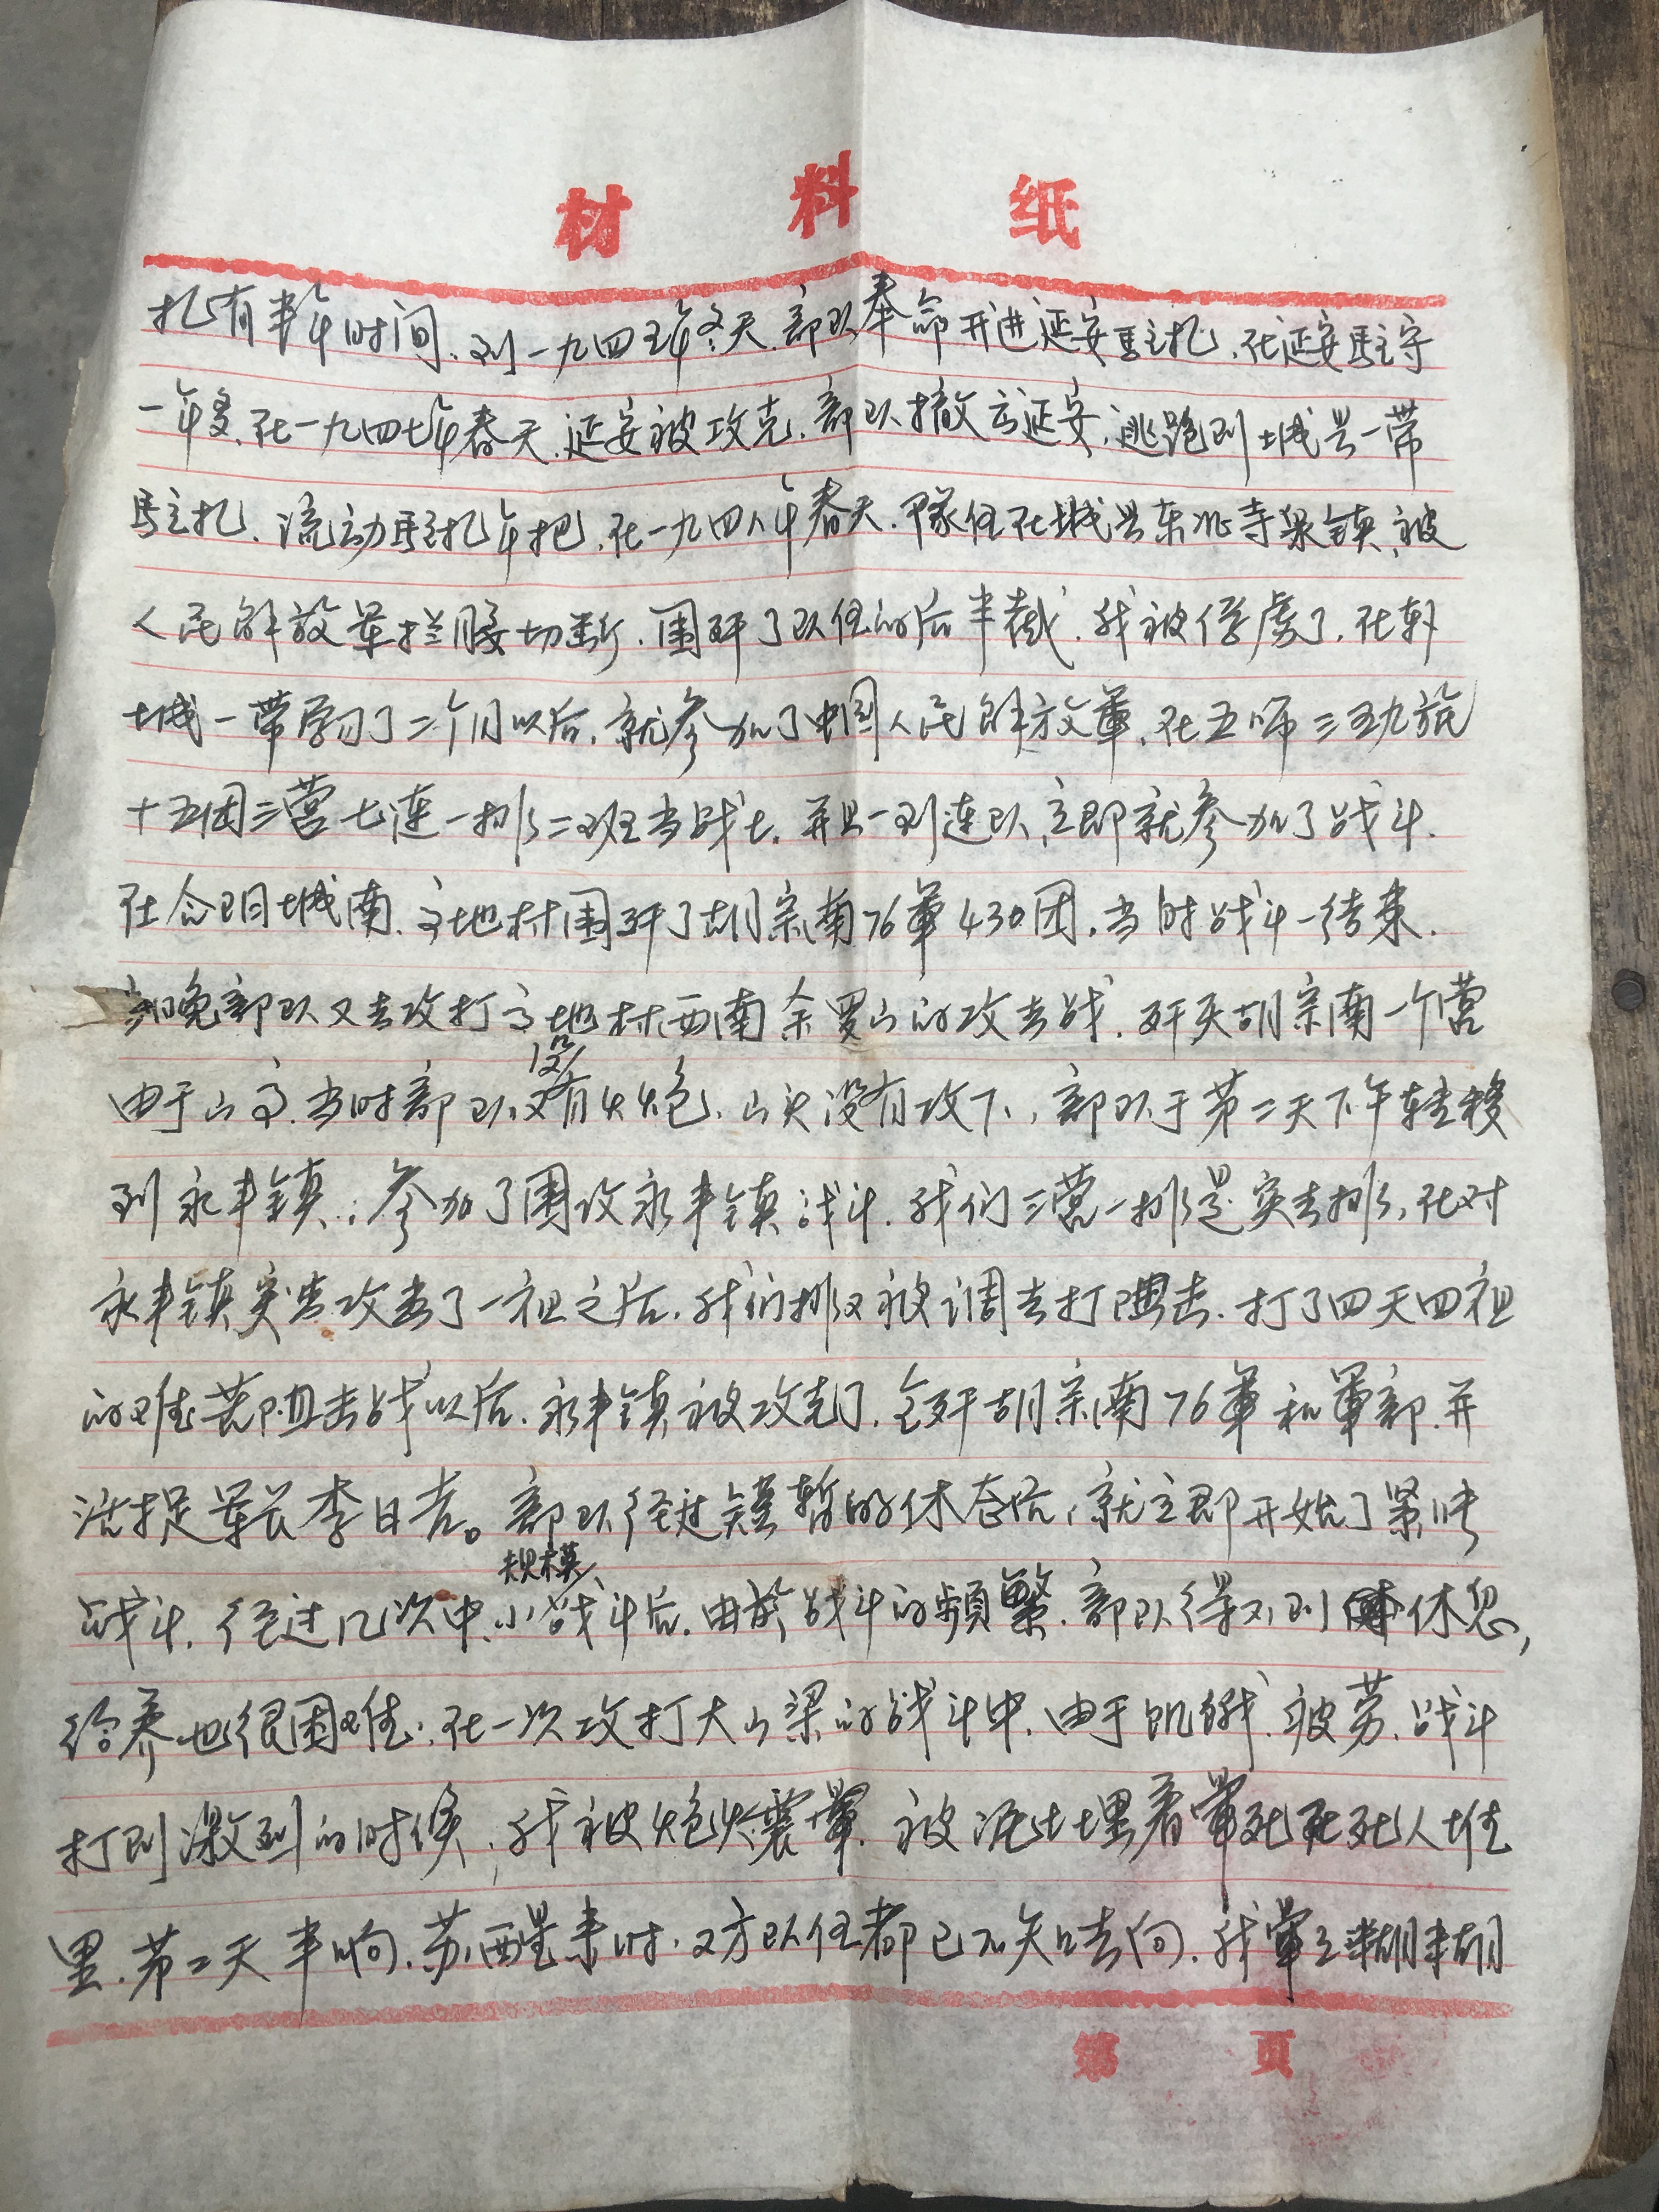 材料纸
扎有半年时间、到一九四五年冬天、部队奉命开进延安駐扎、在延安駐守
一年多、在一九四七年春天、延安被攻克、部队撤去延安、逃跑到 城县一带
駐扎、流动駐扎年把、在一九四八年春天、部队住在 城县东北寺泉镇、被
人民解放軍拦腰切断、围歼了队伍的后半截、我被俘虏了、在韩
城一带学习了二个月以后、就参加了中国人民解放軍、在五师三五九旅
十五团三营七连一排二班当战士、并且一到连队、立即就参加了战斗、
在合阳城南、 地村围歼了胡宗南76軍430团、当时战斗一结束、
当晚部队又去攻打 地村西南 罗山的攻击战、歼灭胡宗南一个营
由于山高、当时部队没有火炮、山头没有攻下、部队于第二天下午轉移
到永丰镇、参加了围攻永丰镇战斗、我们三营一排是突击排、在对
永丰镇突击攻击了一 之后、我们排又被调去打阻击、打了四天四
的难苦阻击战以后、永丰镇被攻克了、全歼胡宗南76軍和軍部、并
活捉軍长李日 。部队经过短暂的休 后、就立即开始了紧张
战斗、经过几次中、小规模战斗后、由於战斗的频繁、部队得不到休息，
给养也很困难、在一次攻打大山梁的战斗中、由于饥餓、疲劳、战斗
打到激烈的时候、我被炮火震暈、被泥土埋着暈死在死人堆
里、第二天半晌、苏醒来时、双方队伍都已不知去向、我暈 糊糊
第 页